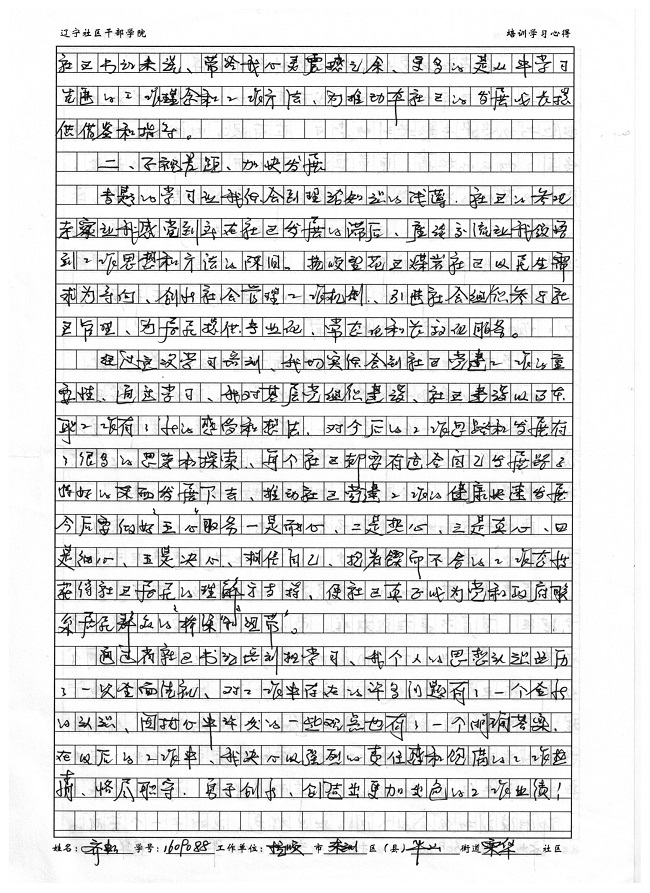 辽宁社区干部学院 培训学习心得
社区书记来说、带给我心灵震撼之余、更多的是从中学习
先进的工作理念和工作方法、为推动本社区的发展成长提
供借鉴和指导。
二、正视差距、加快发展
专题的学习让我体会到理论知识的浅薄、社区的参观
亲家让我感觉到所在社区发展的滞后、座谈交流让我领悟
到工作思想和方法的陈旧。抚顺望花区煤岩社区以民生需
求为导向、创新社会管理工作机制、引进社会组织参与社
区管理、为居民提供专业化、常态化和长效化服务。
经过这次学习培训、我切实体会到社区党建工作的重
要性、通过学习、我对基层党组织建设、社区建设以及本
职工作有了新的感悟和想法、对今后的工作思路和发展有
了很多的思考和探索、每个社区都要有适合自己发展路子
、推动社区党建工作的健康快速发展
今后要做好"五心"服务一是耐心、二是热心、三是真心、四
是细心、五是决心、相信自己、抱着锲而不舍的工作态度
获得社区居民的理解与支持、使社区真正成为党和政府联
系居民群众的"桥梁和纽带"。
通过省社区书记培训班学习、我个人的思想认识进行
了一次全面洗礼、对工作中存在的许多问题有了一个全新
的认识、困扰心中许久的一些观点也有了一个明确答案、
在以后的工作中、我决心以强烈的责任感和饱满的工作热
情、恪尽职守、勇于创新、创造出更加出色的工作业绩！
姓名： 学号：1609088 工作单位：抚顺 市 区（县） 街道 社区